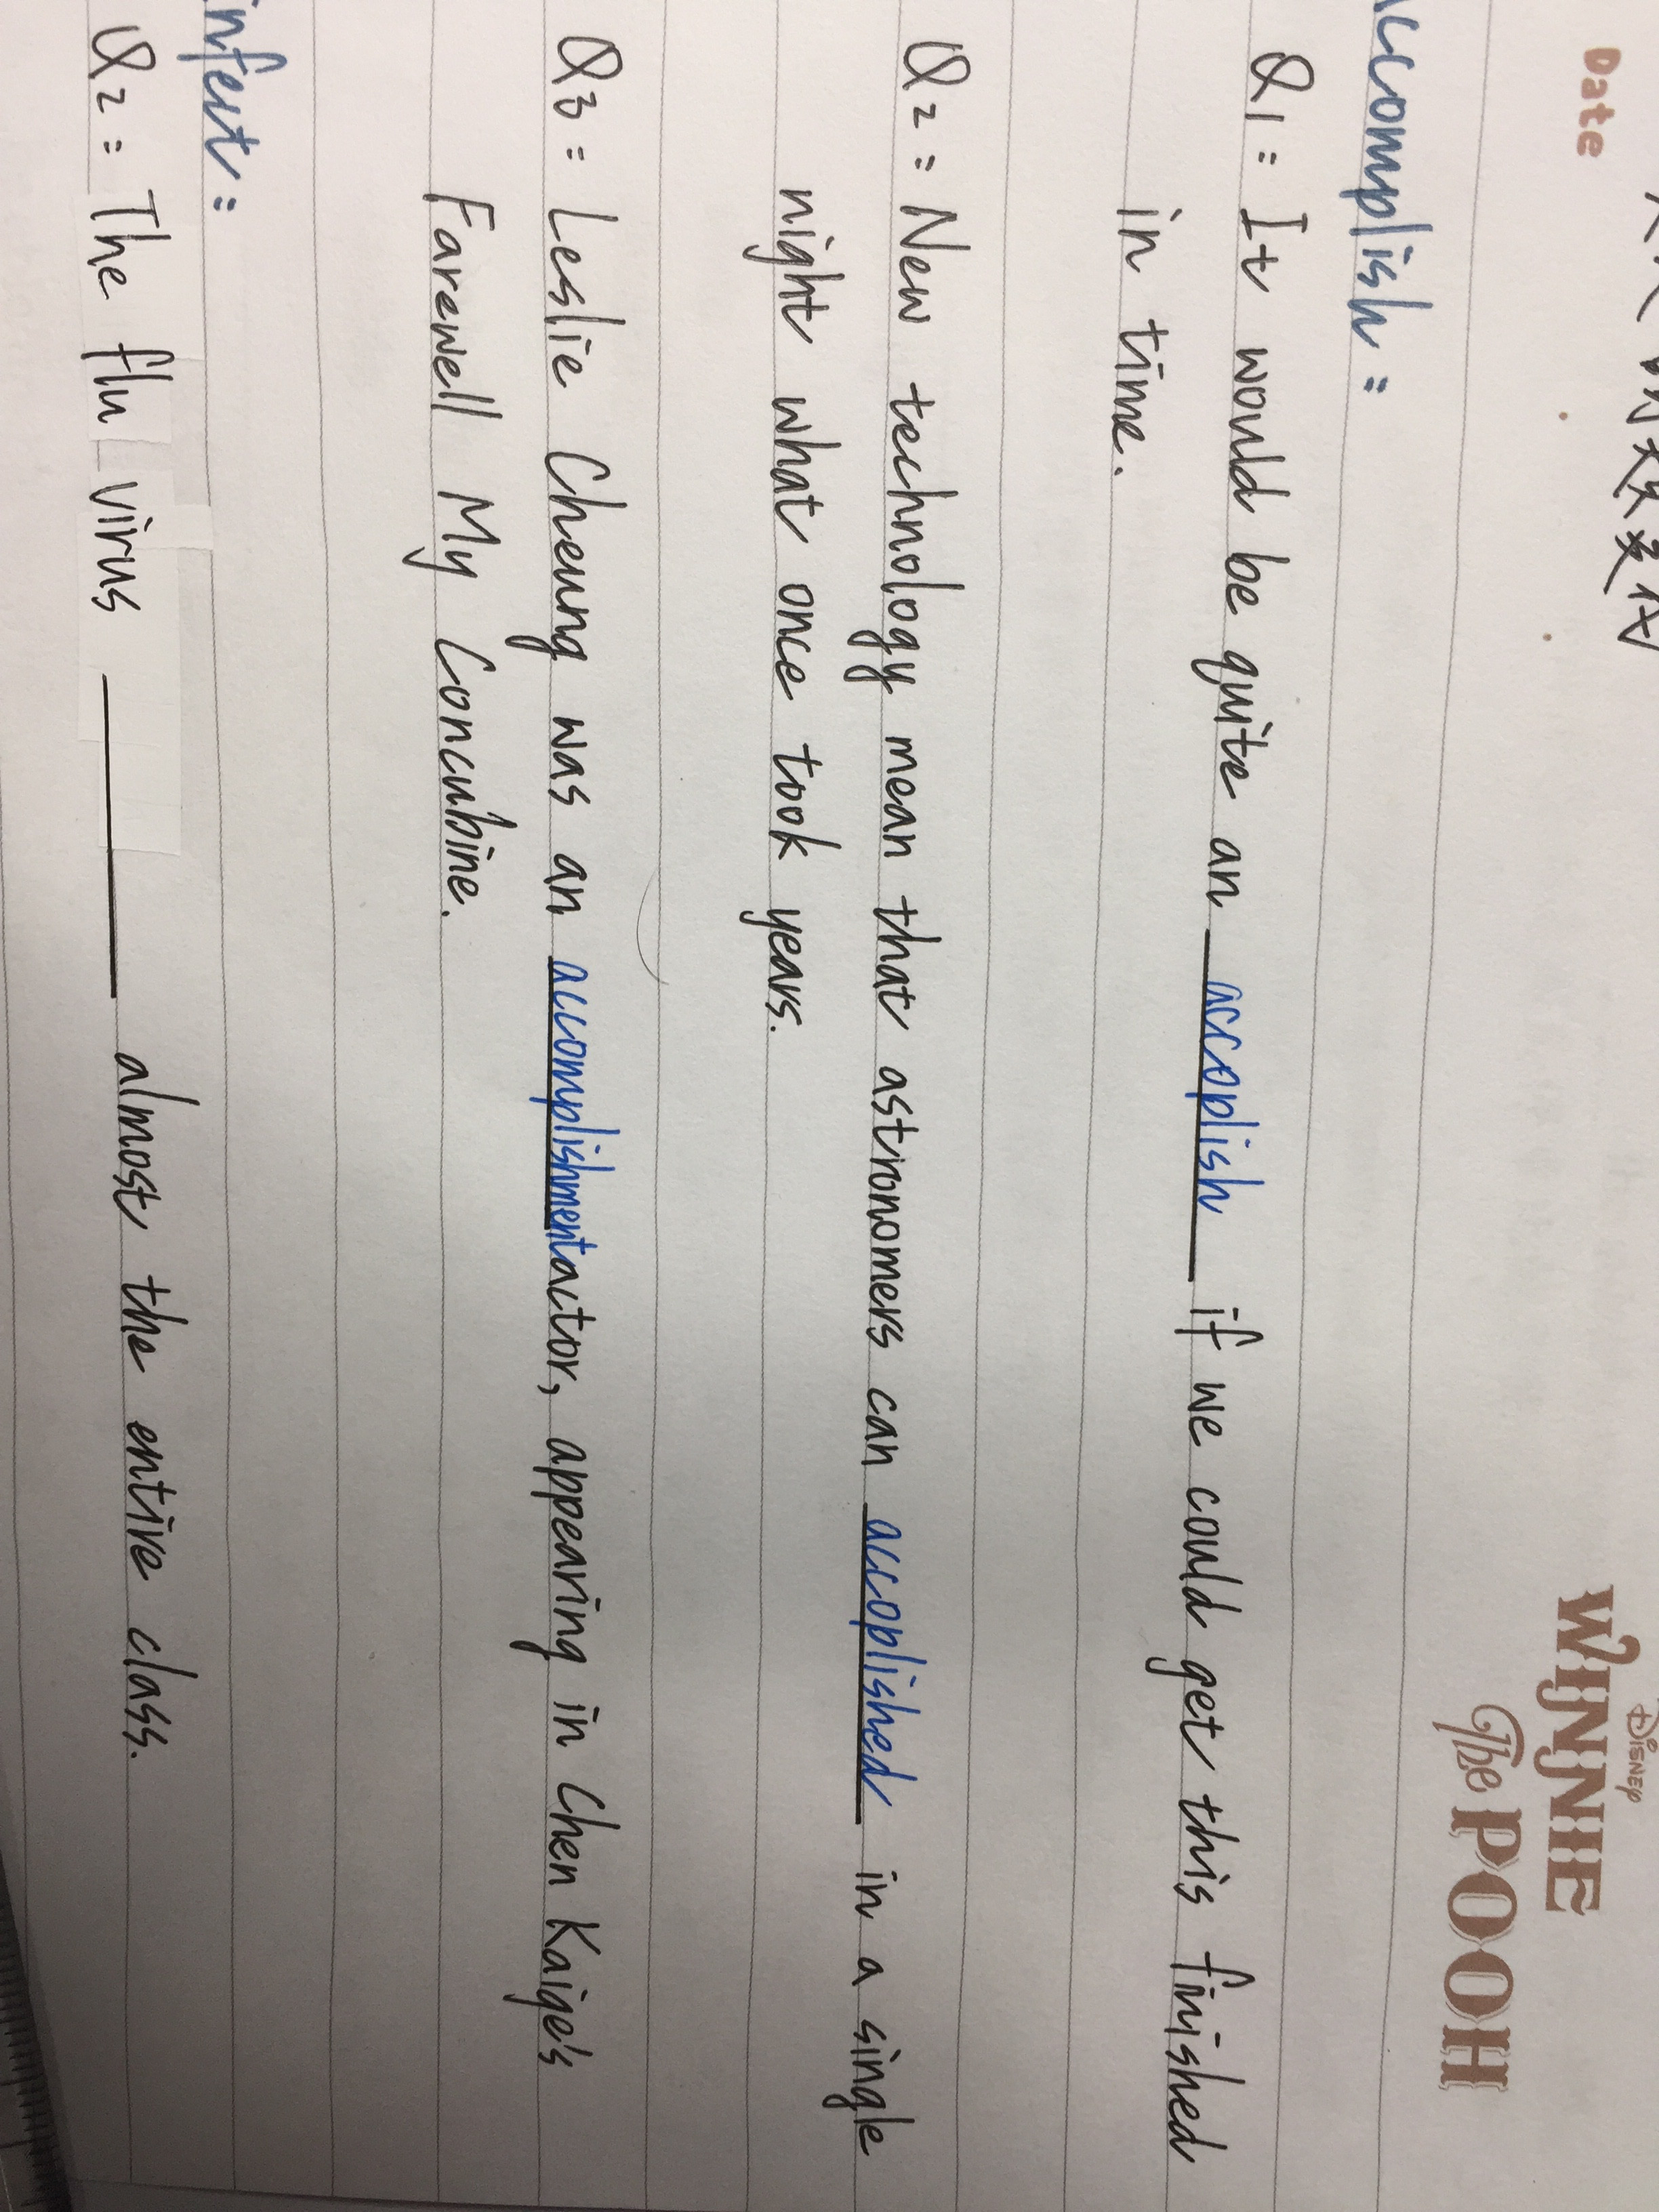 Date
DISNEY
WINNIE
The POOH
accomplish:
Q1: It would be quite an accoplish if we could get this finished
in time.
Q2: New technology mean that astronomers can accoplished in a single
night what once took years.
Q3: Leslie Cheung was an accomplishment actor, appearing in Chen Kaige's
Farewell My Concubine.
infect:
Q2: The flu virus ______ almost the entire class.